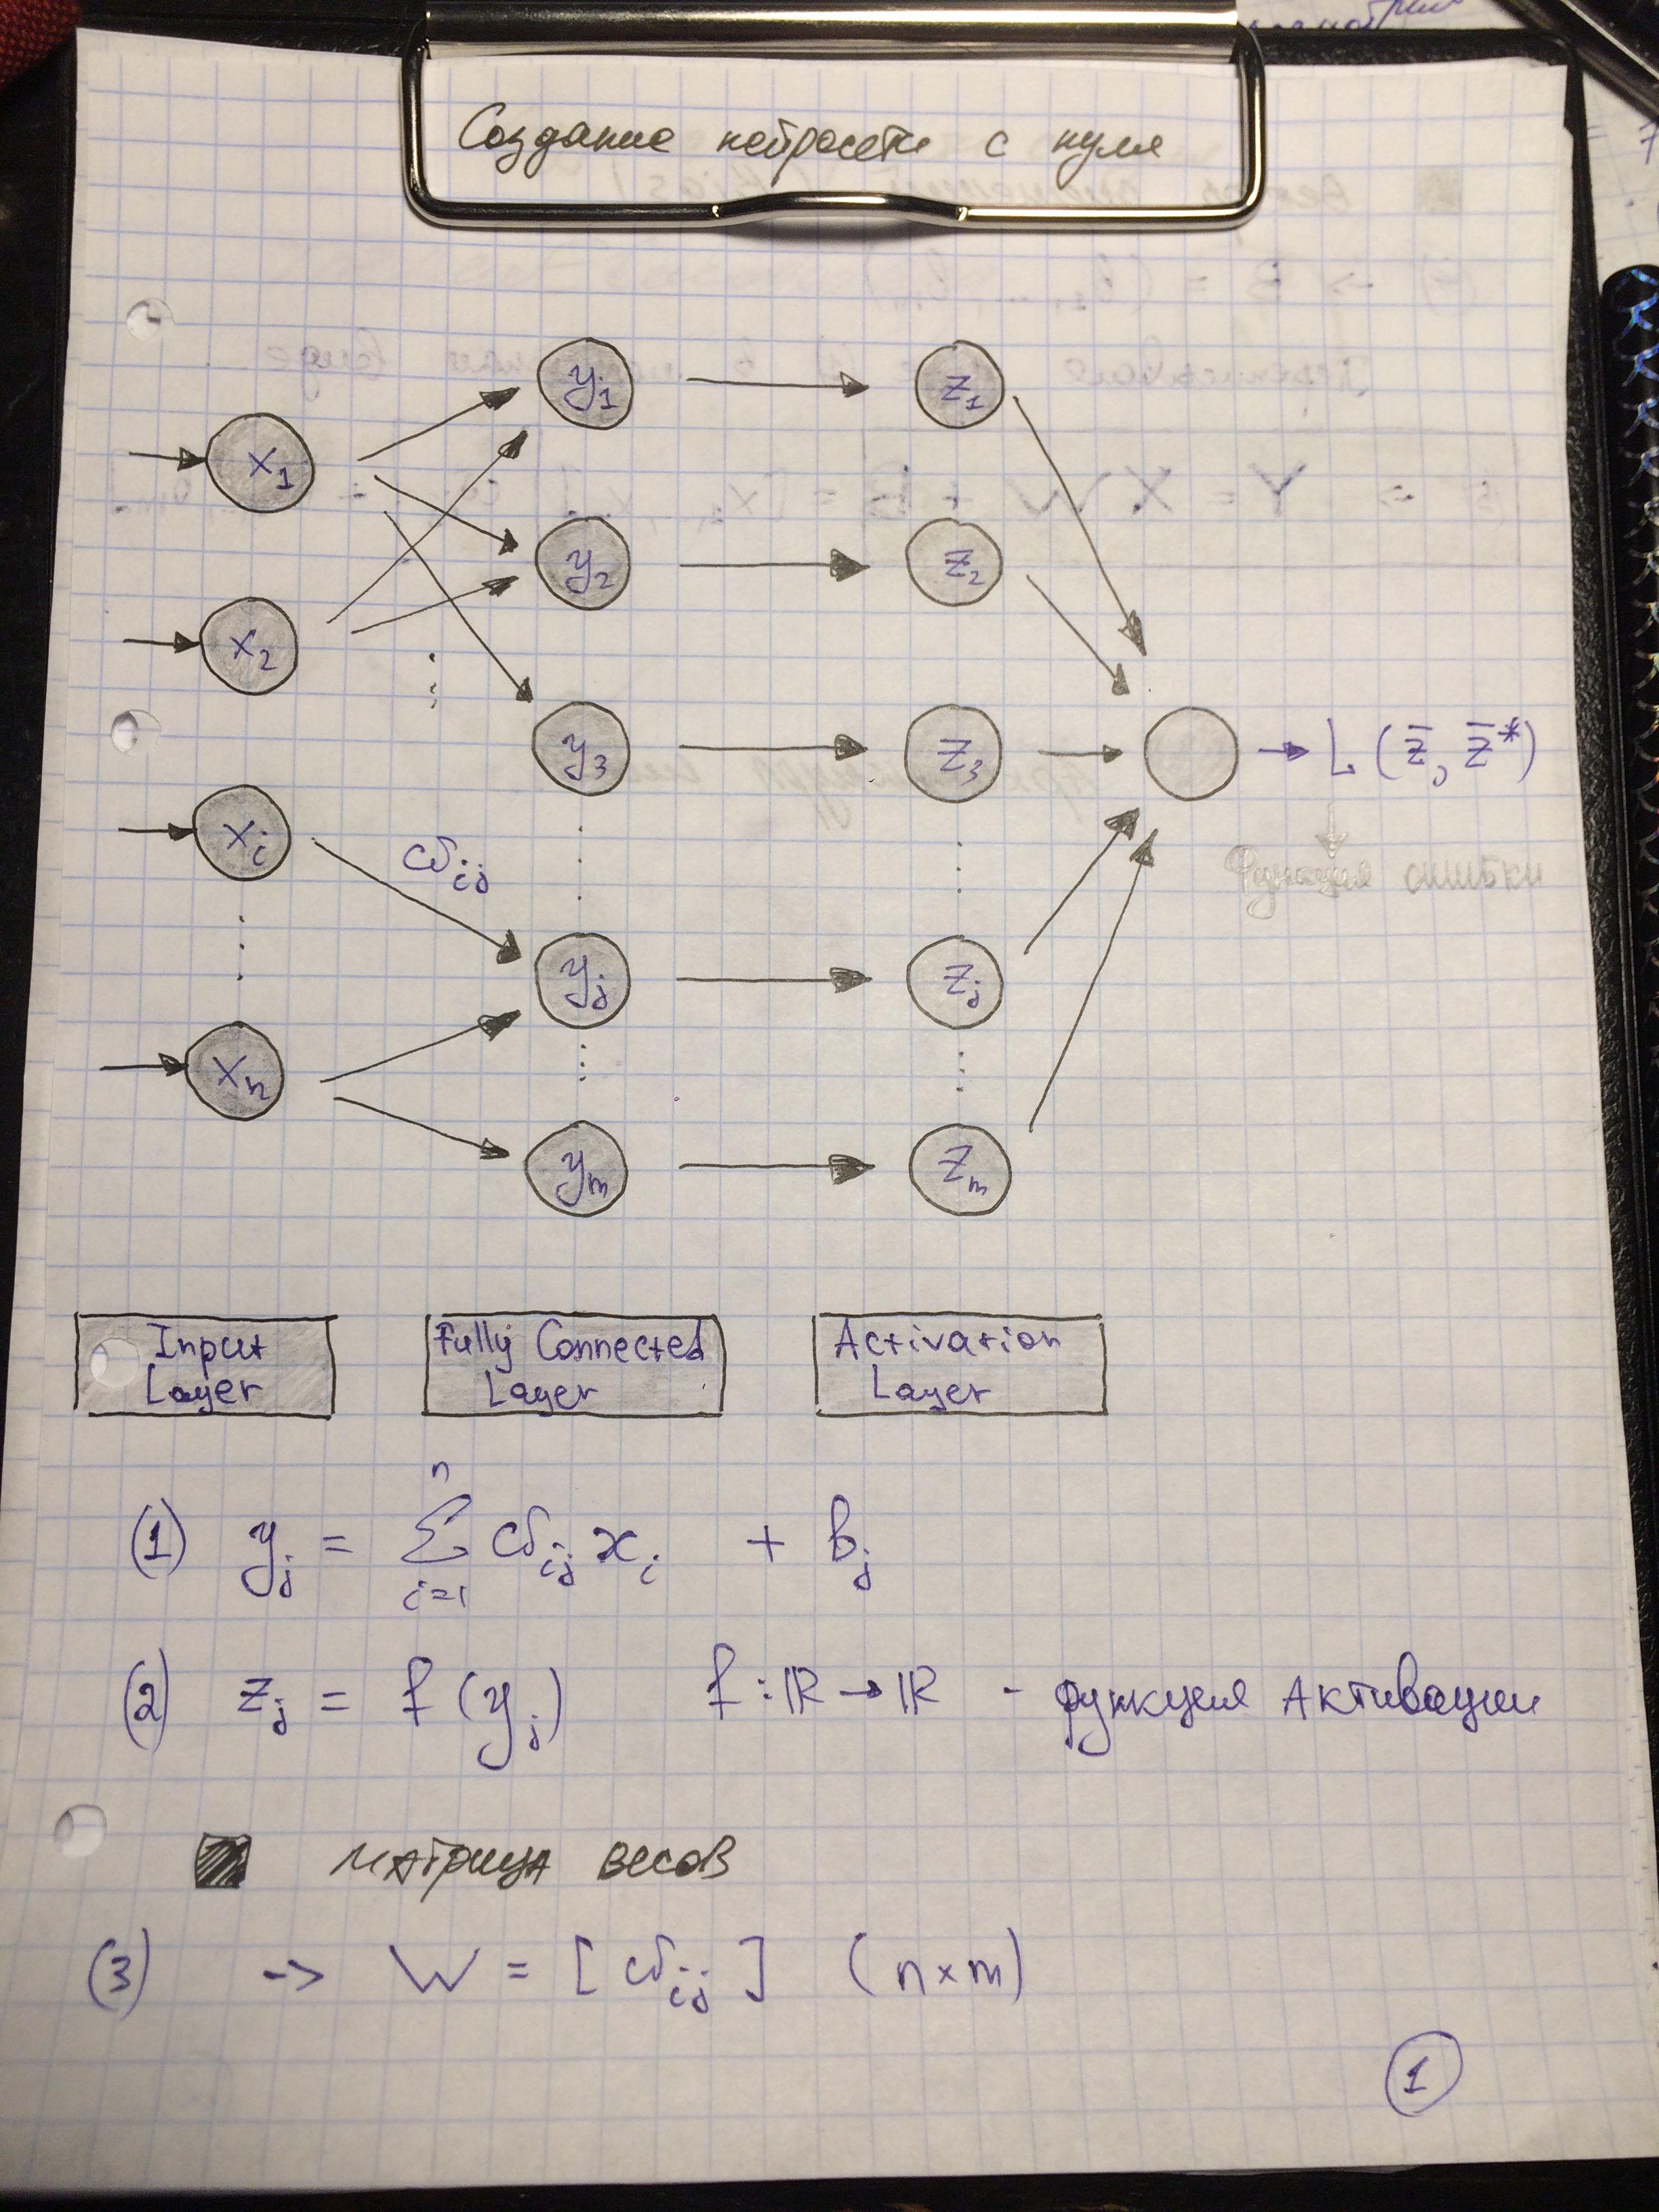 Создание нейросети с нуля
x₁
x₂
xᵢ
xₙ
ωᵢⱼ
y₁
y₂
y₃
yⱼ
yₘ
z₁
z₂
z₃
zⱼ
zₘ
→ L (z̄, z̄*)
Функция ошибки
Input Layer
Fully Connected Layer
Activation Layer
(1) yⱼ = Σᵢ₌₁ⁿ ωᵢⱼ xᵢ + bⱼ
(2) zⱼ = f (yⱼ) f : ℝ → ℝ - функция Активации
Матрица весов
(3) -> W = [ ωᵢⱼ ] (n×m)
1